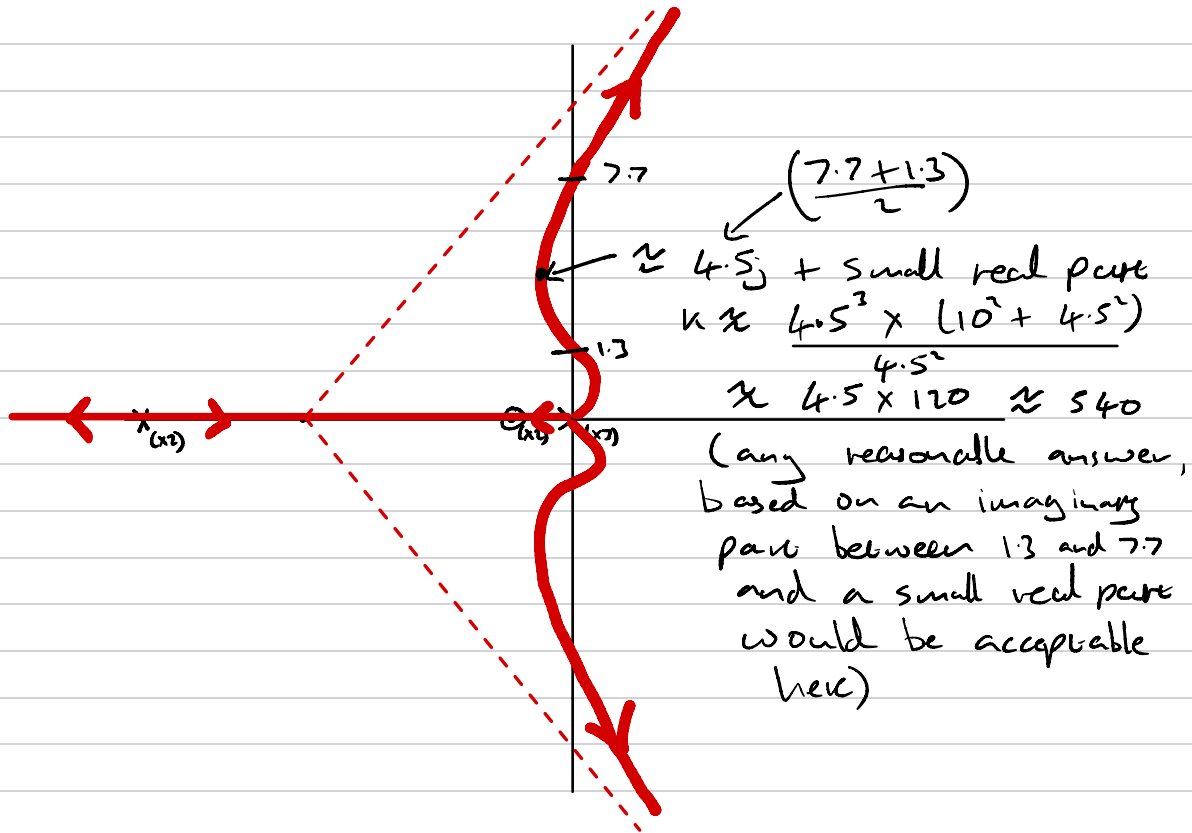 (7.7 + 1.3 / 2)
7.7
≈ 4.5j + small real part
k ≈ 4.5³ × (10² + 4.5²) / 4.5²
1.3
≈ 4.5 × 120 ≈ 540
X (x2) O (x2) X (x3)
(any reasonable answer,
based on an imaginary
part between 1.3 and 7.7
and a small real part
would be acceptable
here)